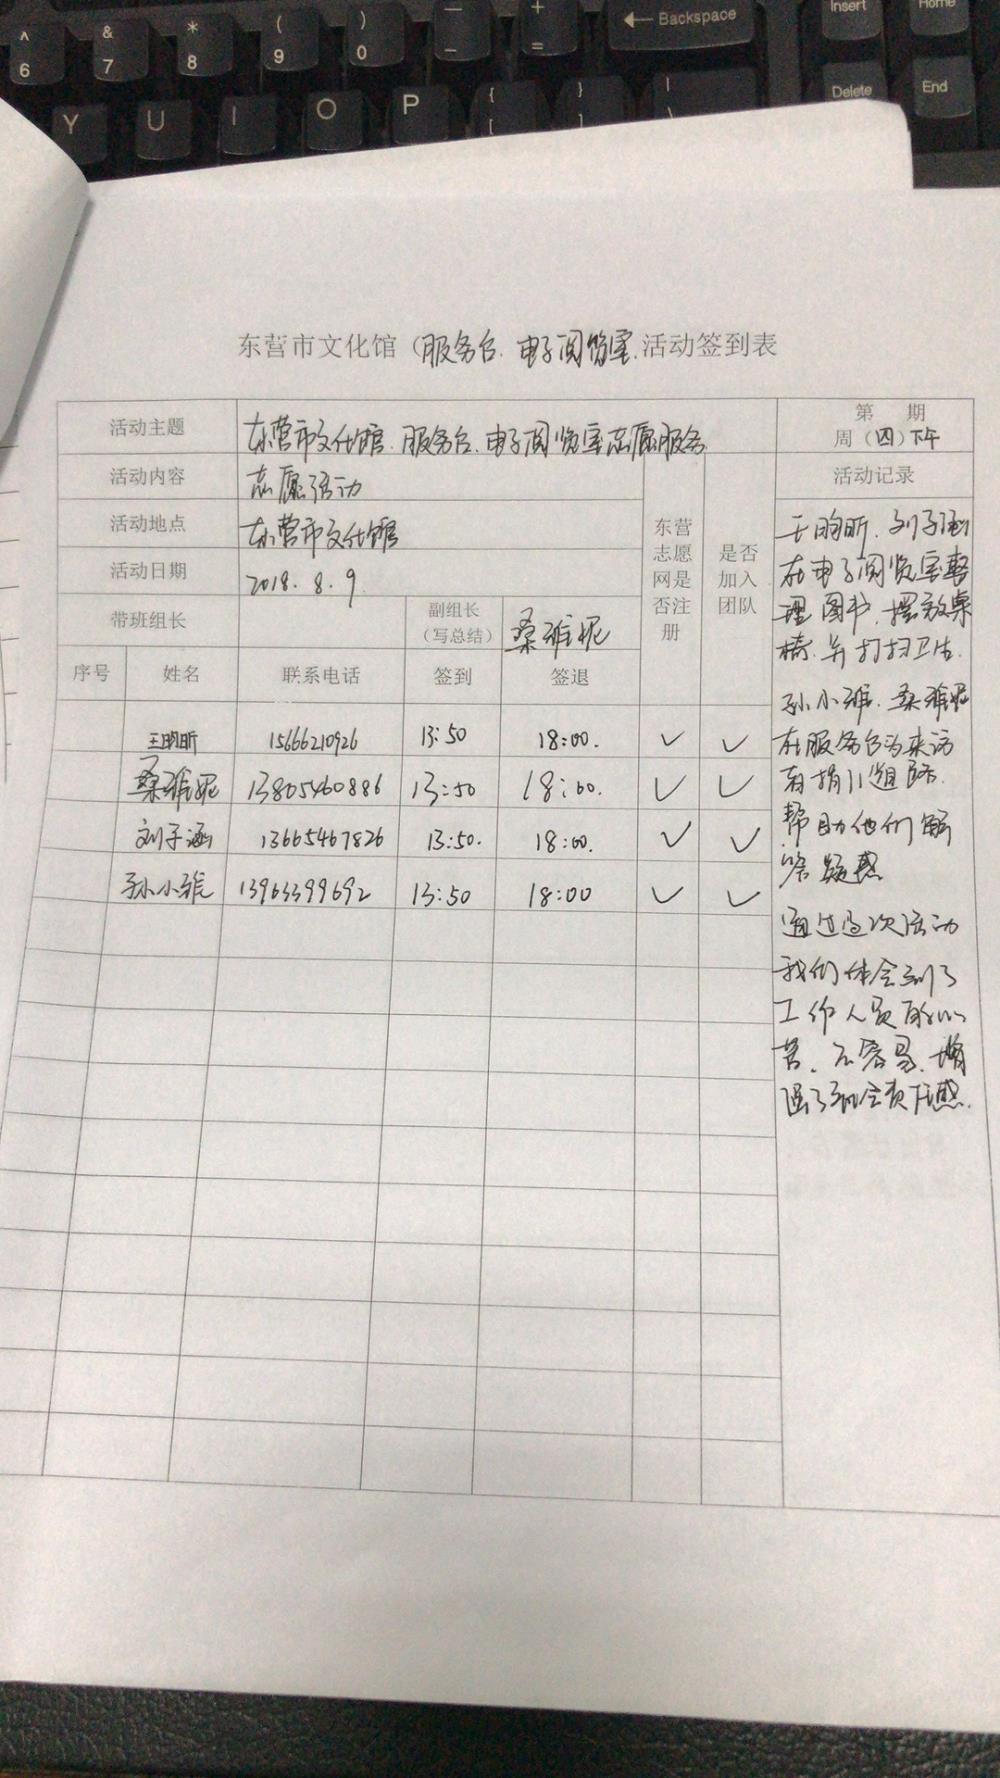 ^ 6
& 7
* 8
( 9
) 0
— -
+ =
← Backspace
Insert
Home
Y U I O P { [ } ] |
Delete
End
东营市文化馆（服务台.电子阅览室.活动签到表
活动主题 东营市文化馆.服务台.电子阅览室志愿服务 第 期
周（四）下午
活动内容 志愿活动 活动记录
活动地点 东营市文化馆
活动日期 2018.8.9
东营志愿网是否注册
是否加入团队
带班组长 副组长（写总结） 桑雅妮
序号 姓名 联系电话 签到 签退
王昀昕 15666210926 13:50 18:00. ✓ ✓
桑雅妮 13805460886 13:50 18:00. ✓ ✓
刘子涵 13665467826 13:50. 18:00. ✓ ✓
孙小雅 13963399692 13:50 18:00 ✓ ✓
王昀昕.刘子涵
在电子阅览室整
理图书.摆放桌
椅.并打扫卫生.
孙小雅.桑雅妮
在服务台为来访
者指引道路.
帮助他们解
答疑惑
通过这次活动
我们体会到了
工作人员的心
苦.不容易.增
强了社会责任感.